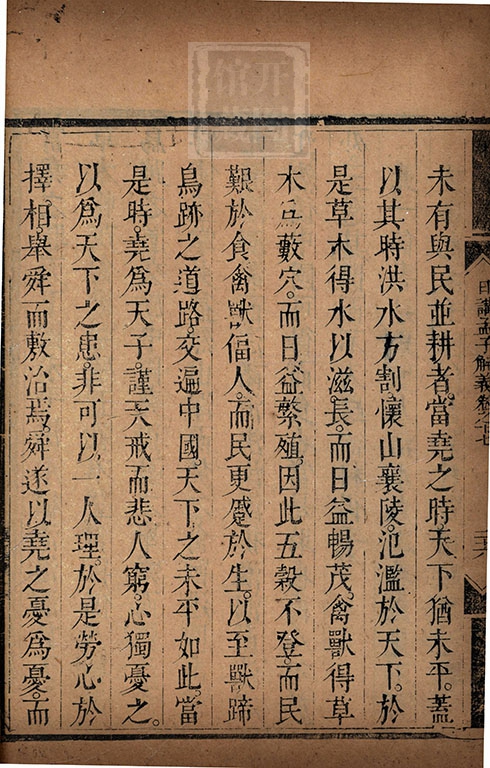 未有與民並耕者。當堯之時天下猶未平。蓋
以其時洪水方割。懷山襄陵。氾濫於天下。於
是草木得水以滋長。而日益暢茂。禽獸得草
木為藪穴。而日益繁殖。因此五穀不登。而民
艱於食禽獸偪人。而民更蹙於生。以至獸蹄
鳥跡之道路。交遍中國。天下之未平如此。當
是時。堯為天子。謹天戒而悲人窮。心獨憂之。
以爲天下之患。非可以一人理。於是勞心於
擇相。舉舜而敷治焉。舜遂以堯之憂爲憂。而
日講孟子解義